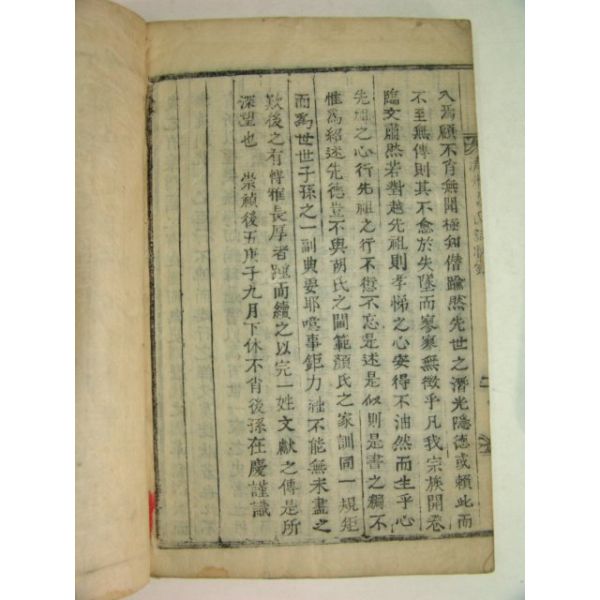 入焉顧不肖無聞極知僭踰然先世之潛光隱德或賴此而
不至無傳則其不愈於失墜而寥寥無徵乎凡我宗族開卷
臨文肅然若對越先祖則孝悌之心安得不油然而生乎心
先祖之心行先祖之行不愆不忘是述是似則是書之編不
惟為紹述先德豈不與胡氏之閫範顏氏之家訓同一規矩
而為世世子孫之一訓典要耶噫事鉅力祉不能無未盡之
歎後之有惇雅長厚者踵而續之以完一姓文獻之傳是所
深望也 崇禎後五庚子九月下休不肖後孫在慶謹識